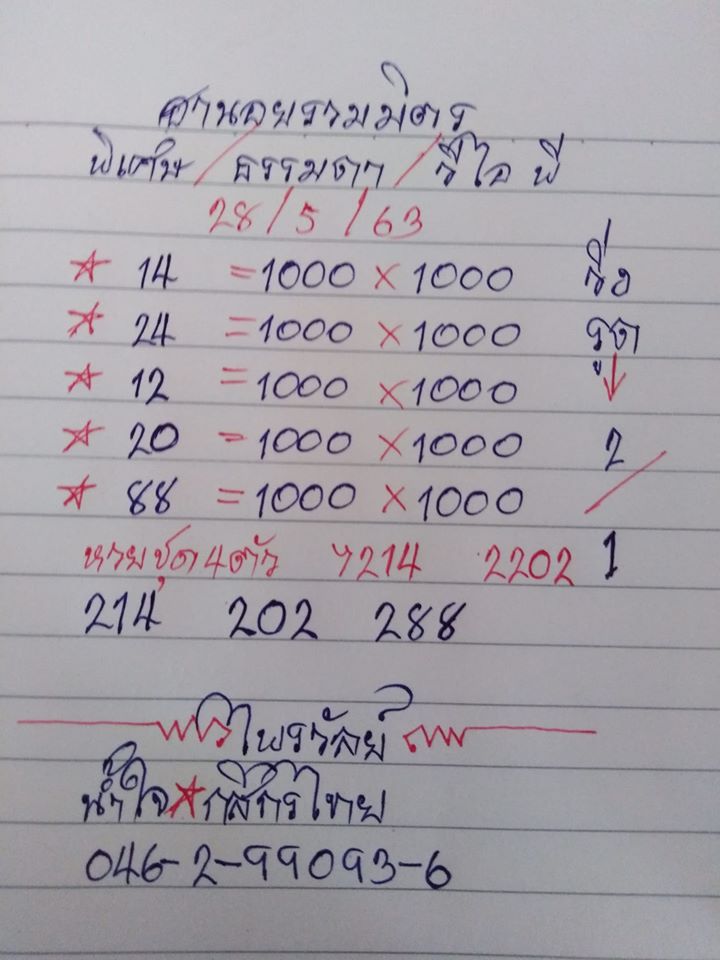 ฮานอยรวมมิตร
พิเศษ / ธรรมดา / วีไอ พี
28 / 5 / 63
☆ 14 = 1000 × 1000 วิ่ง
☆ 24 = 1000 × 1000 รูด
☆ 12 = 1000 × 1000 ↓
☆ 20 = 1000 × 1000 2
☆ 88 = 1000 × 1000 /
หวยชุด 4 ตัว 7214 2202 1
214 202 288
ไพรวัลย์
น้ำใจ ★ กสิกรไทย
046-2-99093-6